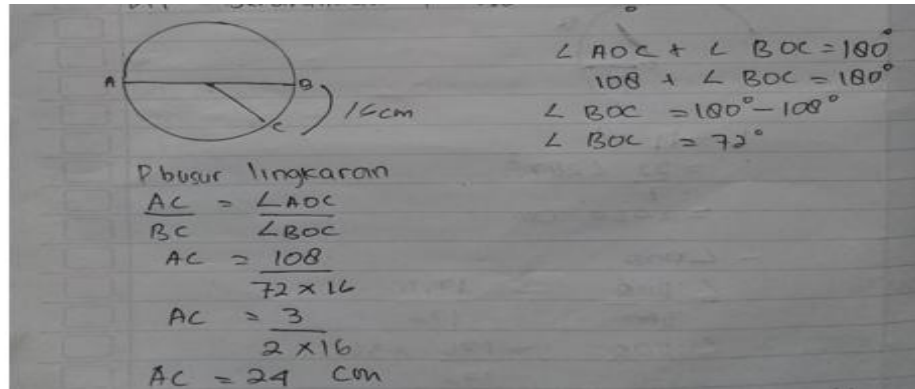 A
B
C
16cm
∠ AOC + ∠ BOC = 180°
108 + ∠ BOC = 180°
∠ BOC = 180° - 108°
∠ BOC = 72°
P busur lingkaran
AC = ∠AOC
BC ∠BOC
AC = 108
72 × 16
AC = 3
2 × 16
AC = 24 cm